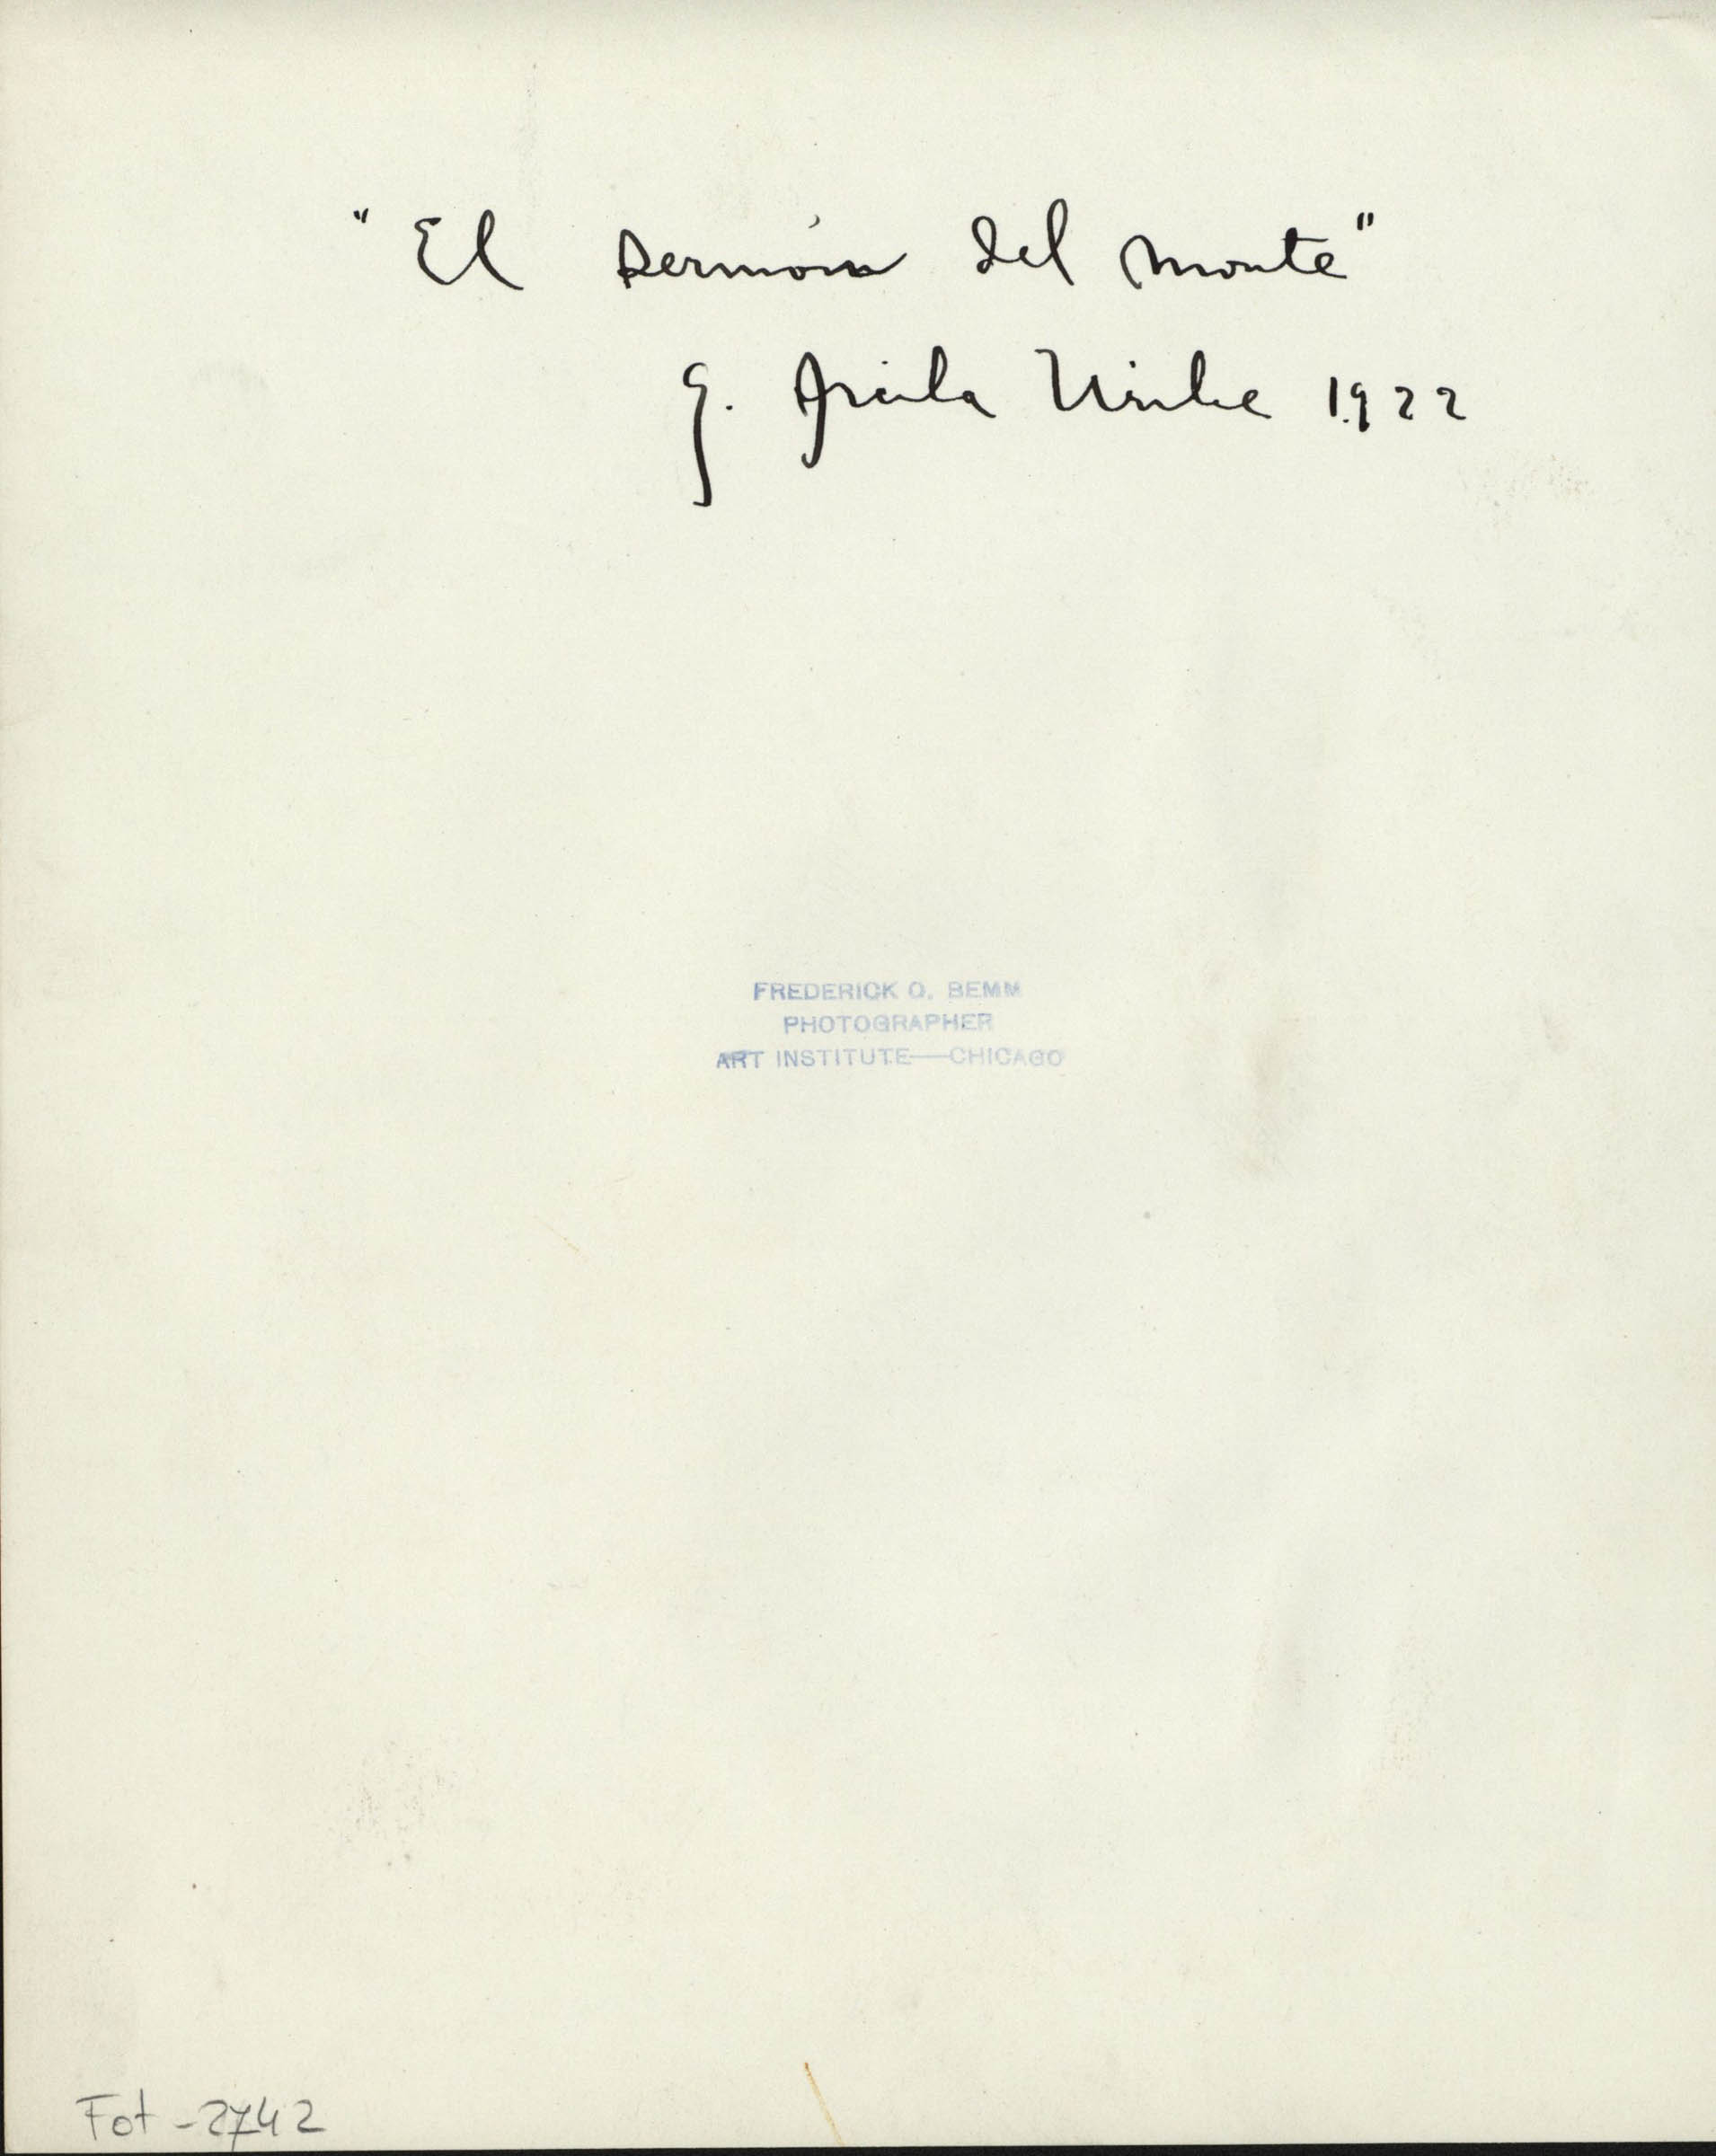 "El sermón del monte"
G. Arcila Uribe 1922
FREDERICK O. BEMM
PHOTOGRAPHER
ART INSTITUTE—CHICAGO
Fot-2742